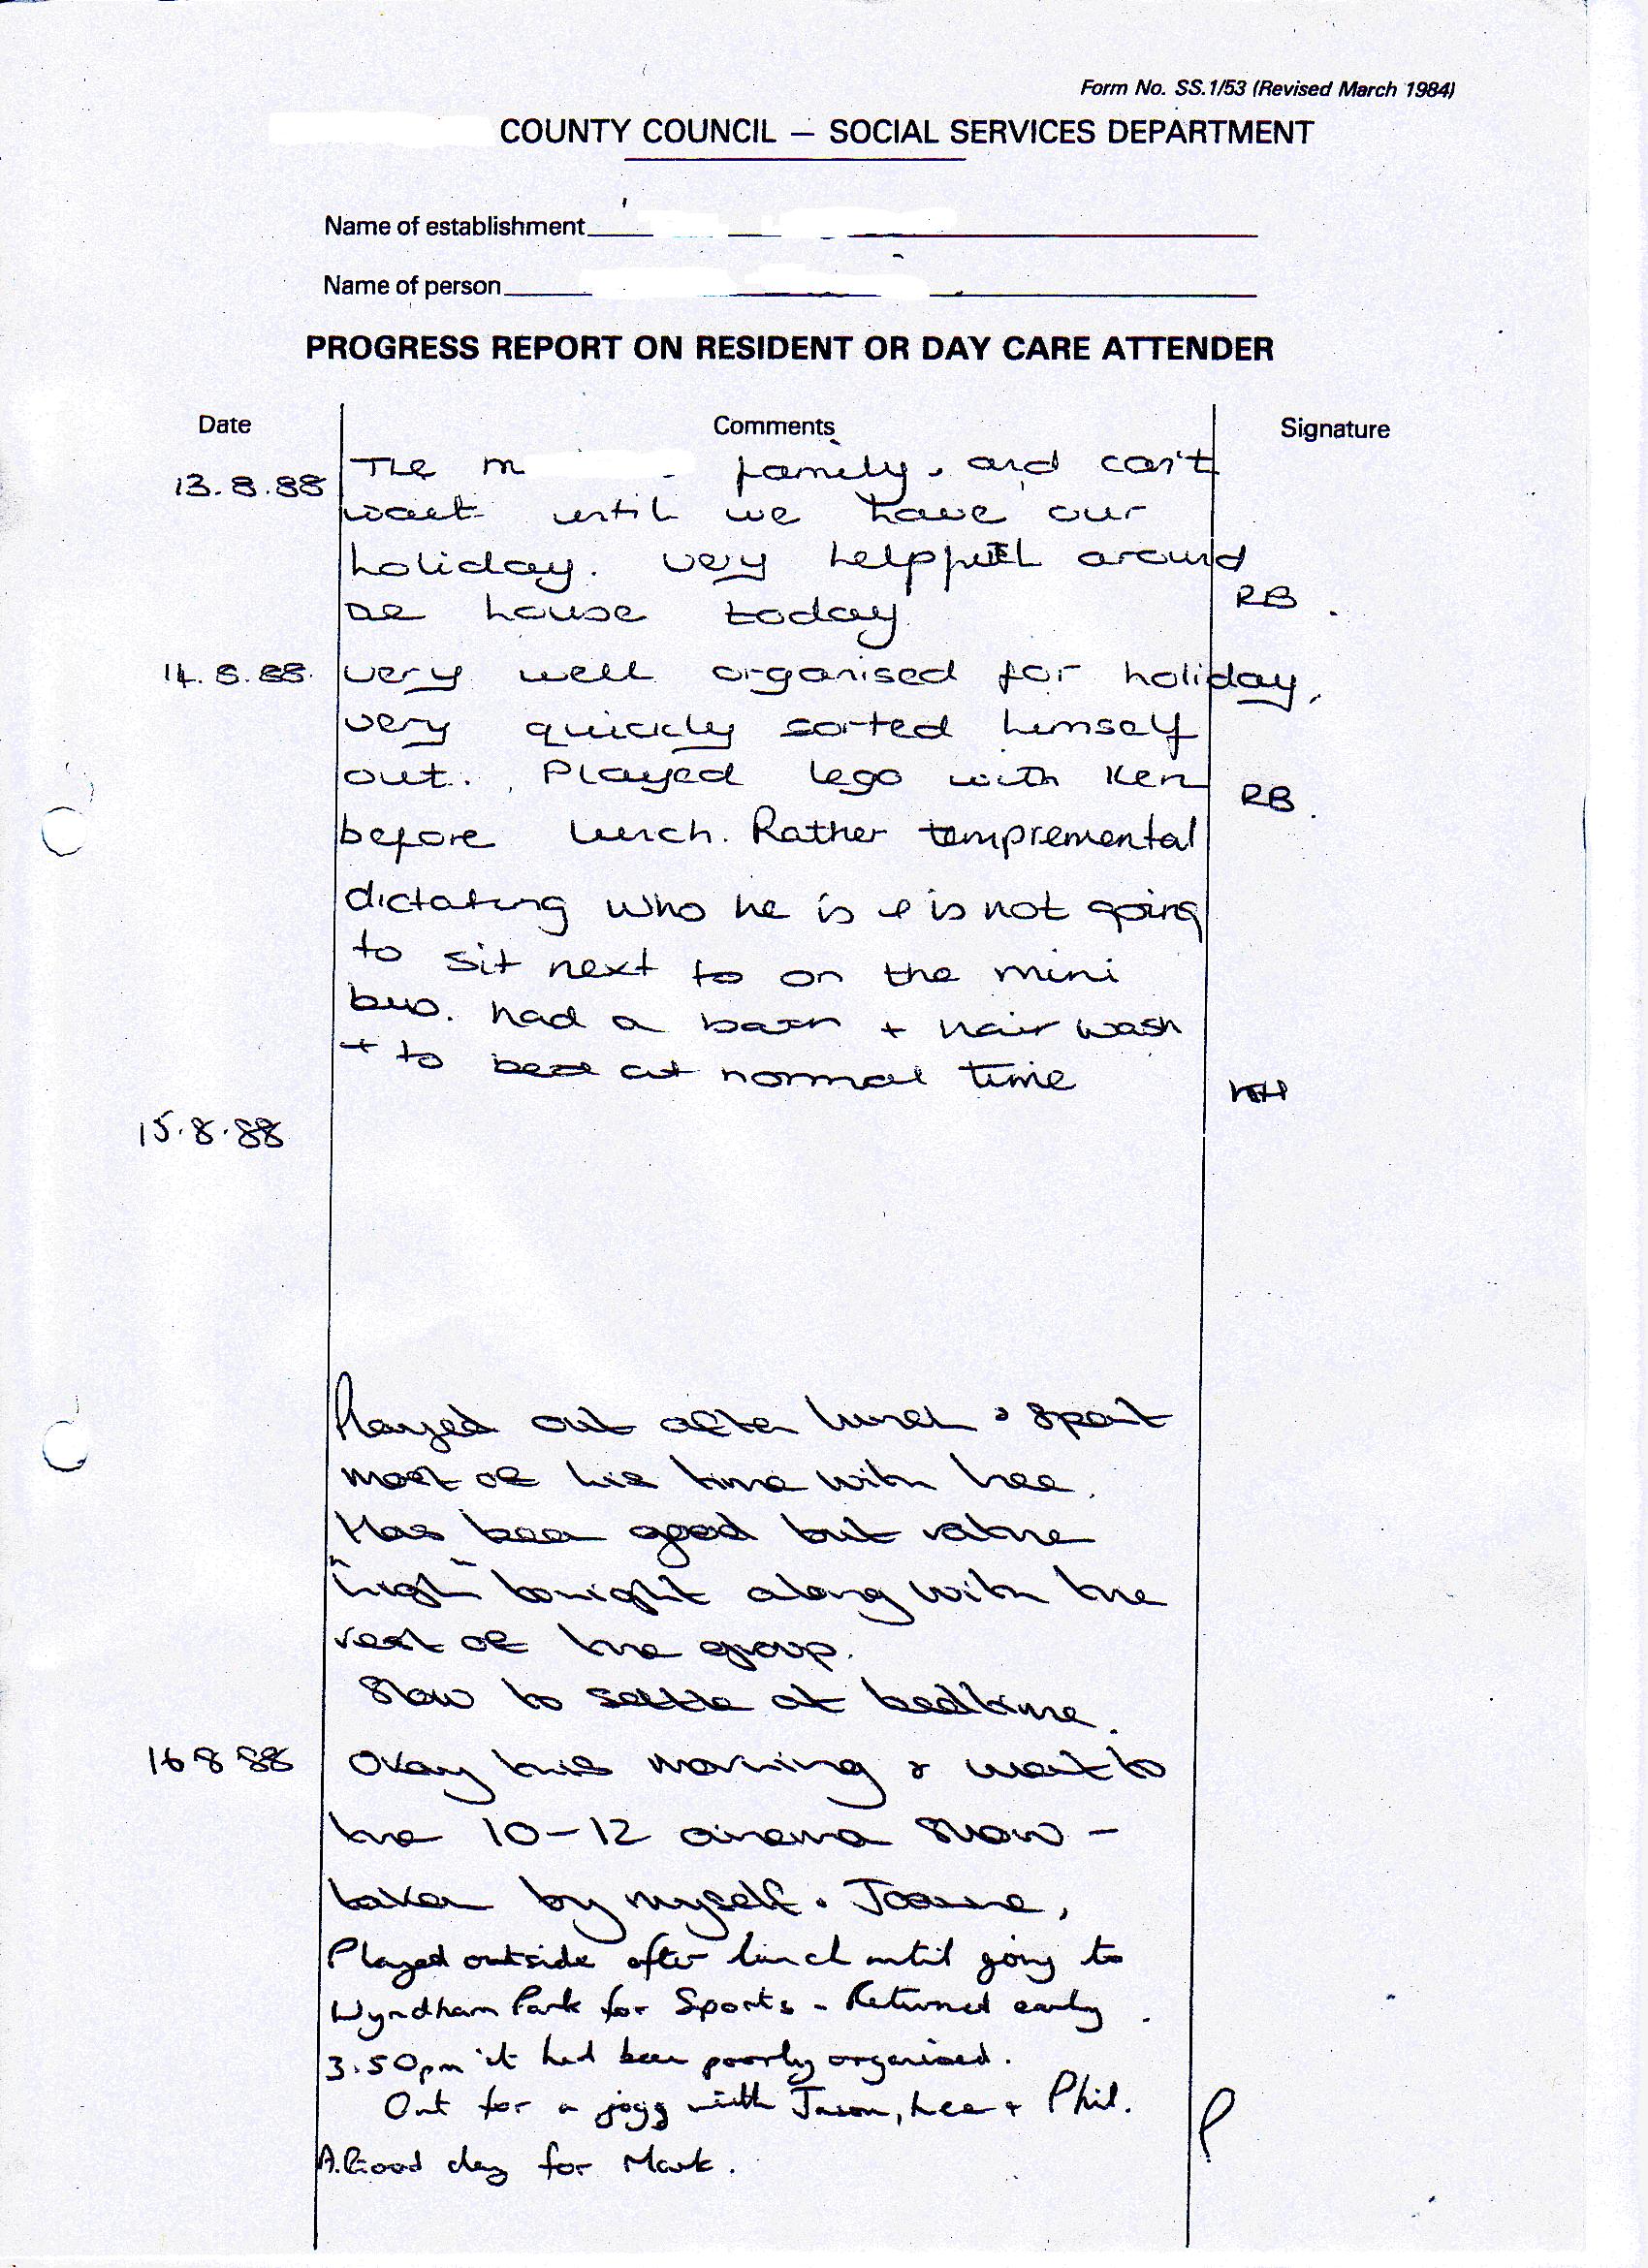 Form No. SS.1/53 (Revised March 1984)
COUNTY COUNCIL — SOCIAL SERVICES DEPARTMENT
Name of establishment
Name of person
PROGRESS REPORT ON RESIDENT OR DAY CARE ATTENDER
Date Comments Signature
13.8.88 The m family, and can't
wait until we have our
holiday. very helpful around
the house today RB.
14.8.88. very well organised for holiday,
very quickly sorted himself
out. Played lego with Ken RB.
before lunch. Rather tempremental
dictating who he is & is not going
to sit next to on the mini
bus. had a bath + hair wash
+ to bed at normal time
15.8.88
Played out after lunch & spent
most of his time with Lee.
Has been good but rather
"high" tonight along with the
rest of the group.
Slow to settle at bedtime.
16 8 88 Okay this morning & went to
the 10-12 cinema show -
taken by myself. Joanne,
Played outside after lunch until going to
Wyndham Park for Sports - Returned early.
3.50pm it had been poorly organised.
Out for a jogg with Jason, Lee + Phil. P
A. Good day for Mark.